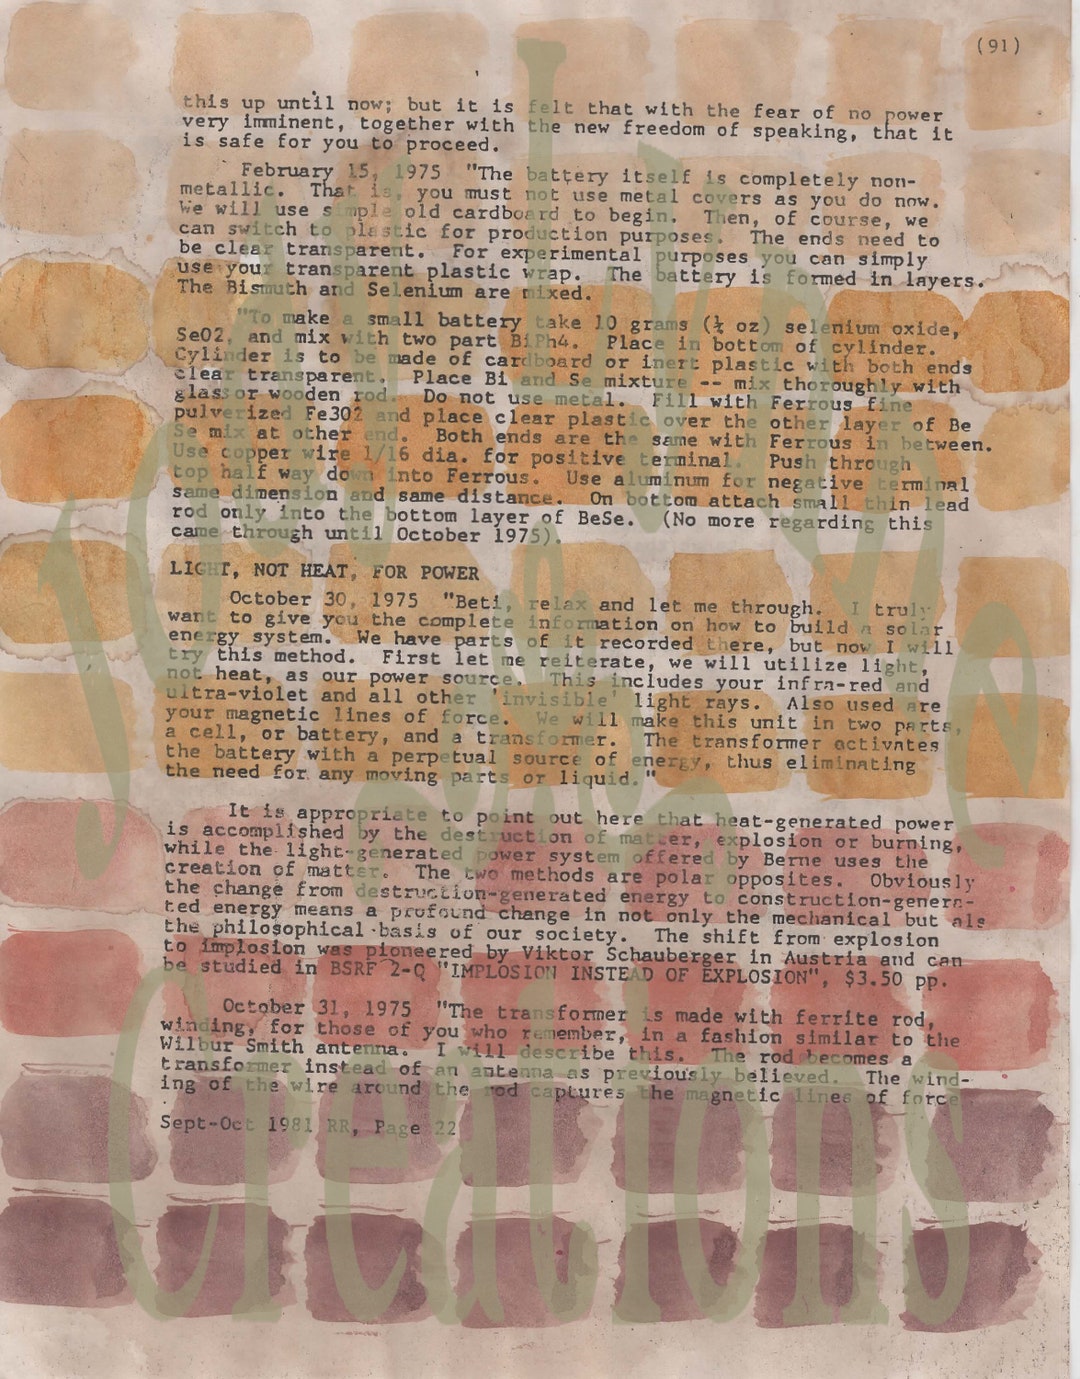 (91)
this up until now; but it is felt that with the fear of no power
very imminent, together with the new freedom of speaking, that it
is safe for you to proceed.
February 15, 1975 "The battery itself is completely non-
metallic. That is, you must not use metal covers as you do now.
We will use simple old cardboard to begin. Then, of course, we
can switch to plastic for production purposes. The ends need to
be clear transparent. For experimental purposes you can simply
use your transparent plastic wrap. The battery is formed in layers.
The Bismuth and Selenium are mixed.
"To make a small battery take 10 grams (¼ oz) selenium oxide,
Se02, and mix with two part BiPh4. Place in bottom of cylinder.
Cylinder is to be made of cardboard or inert plastic with both ends
clear transparent. Place Bi and Se mixture -- mix thoroughly with
glass or wooden rod. Do not use metal. Fill with Ferrous fine
pulverized Fe302 and place clear plastic over the other layer of Be
Se mix at other end. Both ends are the same with Ferrous in between.
Use copper wire 1/16 dia. for positive terminal. Push through
top half way down into Ferrous. Use aluminum for negative terminal
same dimension and same distance. On bottom attach small thin lead
rod only into the bottom layer of BeSe. (No more regarding this
came through until October 1975).
LIGHT, NOT HEAT, FOR POWER
October 30, 1975 "Beti, relax and let me through. I truly
want to give you the complete information on how to build a solar
energy system. We have parts of it recorded there, but now I will
try this method. First let me reiterate, we will utilize light,
not heat, as our power source. This includes your infra-red and
ultra-violet and all other 'invisible' light rays. Also used are
your magnetic lines of force. We will make this unit in two parts,
a cell, or battery, and a transformer. The transformer activates
the battery with a perpetual source of energy, thus eliminating
the need for any moving parts or liquid."
It is appropriate to point out here that heat-generated power
is accomplished by the destruction of matter, explosion or burning,
while the light-generated power system offered by Berne uses the
creation of matter. The two methods are polar opposites. Obviously
the change from destruction-generated energy to construction-genera-
ted energy means a profound change in not only the mechanical but als
the philosophical basis of our society. The shift from explosion
to implosion was pioneered by Viktor Schauberger in Austria and can
be studied in BSRF 2-Q "IMPLOSION INSTEAD OF EXPLOSION", $3.50 pp.
October 31, 1975 "The transformer is made with ferrite rod,
winding, for those of you who remember, in a fashion similar to the
Wilbur Smith antenna. I will describe this. The rod becomes a
transformer instead of an antenna as previously believed. The wind-
ing of the wire around the rod captures the magnetic lines of force
Sept-Oct 1981 RR, Page 22
Creations